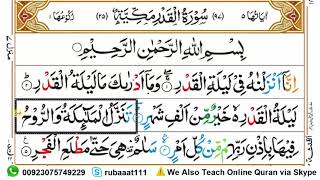 اٰيَاتُهَا ٥ (٩٧) سُوْرَةُ الْقَدْرِ مَكِّيَّةٌ (٢٥) رُكُوْعُهَا ١
بِسْمِ اللّٰهِ الرَّحْمٰنِ الرَّحِيْمِ
اِنَّاۤ اَنْزَلْنٰهُ فِيْ لَيْلَةِ الْقَدْرِ وَمَاۤ اَدْرٰىكَ مَا لَيْلَةُ الْقَدْرِ
لَيْلَةُ الْقَدْرِ خَيْرٌ مِّنْ اَلْفِ شَهْرٍ تَنَزَّلُ الْمَلٰٓئِكَةُ وَالرُّوْحُ
فِيْهَا بِاِذْنِ رَبِّهِمْ مِّنْ كُلِّ اَمْرٍ سَلٰمٌ هِيَ حَتّٰى مَطْلَعِ الْفَجْرِ
00923075749229 rubaaat111 We Also Teach Online Quran via Skype